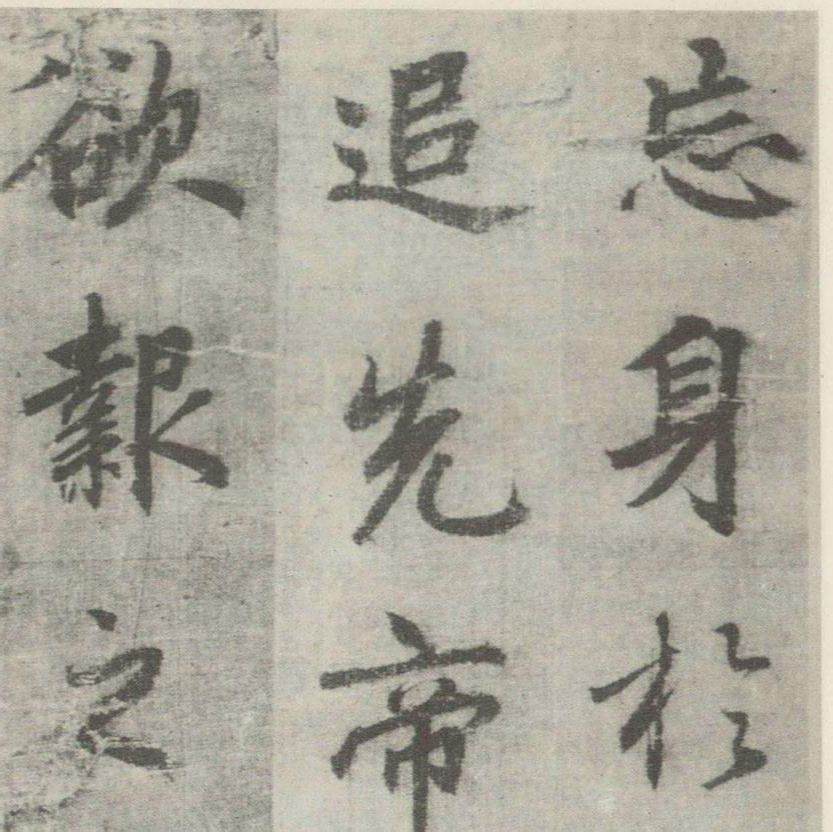 忘身於
追先帝
欲報之